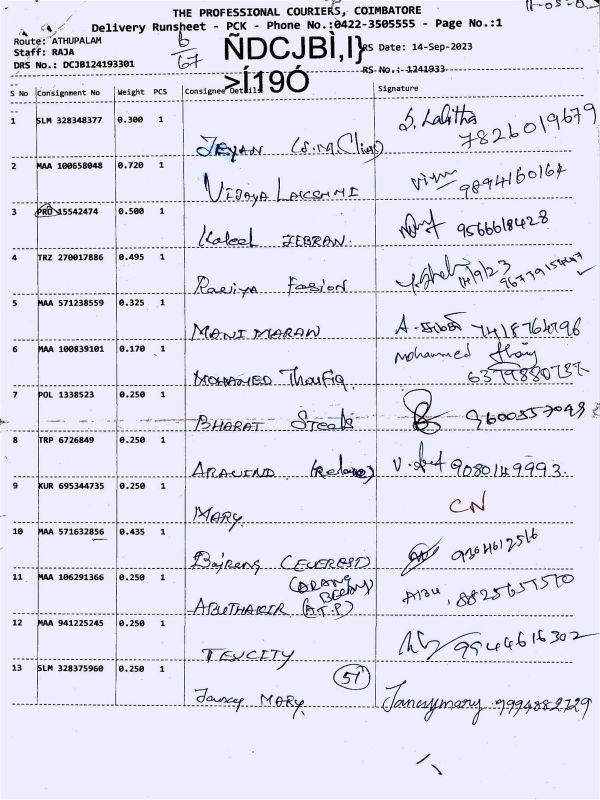 11-05-
THE PROFESSIONAL COURIERS, COIMBATORE
Delivery Runsheet - PCK - Phone No.:0422-3505555 - Page No.:1
Route: ATHUPALAM
Staff: RAJA
DRS No.: DCJB124193301
6/67
ÑDCJBÌ,I}
>Í19Ó
RS Date: 14-Sep-2023
RS No.: 1241933
S No Consignment No Weight PCS Consignee Details Signature
1 SLM 328348377 0.300 1
JEYAN (S.M. S. Lalitha
7826019679
2 MAA 100658048 0.720 1
VIJAYA LAKSHMI 9894160164
3 PRO 15542474 0.500 1
Kaleel JEBRAN. 9566618428
4 TRZ 270017886 0.495 1
Raziya Fasion 14/9/23
5 MAA 571238559 0.325 1
MANIMARAN A- 7418764796
6 MAA 100839101 0.170 1
MOHAMED Thoufiq. mohammed
7 POL 1338523 0.250 1
BHARAT Steels 9600557043
8 TRP 6726849 0.250 1
ARAVIND V. 9080149993.
9 KUR 695344735 0.250 1
MARY. CN
10 MAA 571632856 0.435 1
Bajrang (EVEREST) 9364612516
11 MAA 106291366 0.250 1
ABUTHAKIR (A.T.P) 8825655570
12 MAA 941225245 0.250 1
TEXCITY 9944616302
13 SLM 328375960 0.250 1
51
Jancy MARY. Jancymary 9994882729